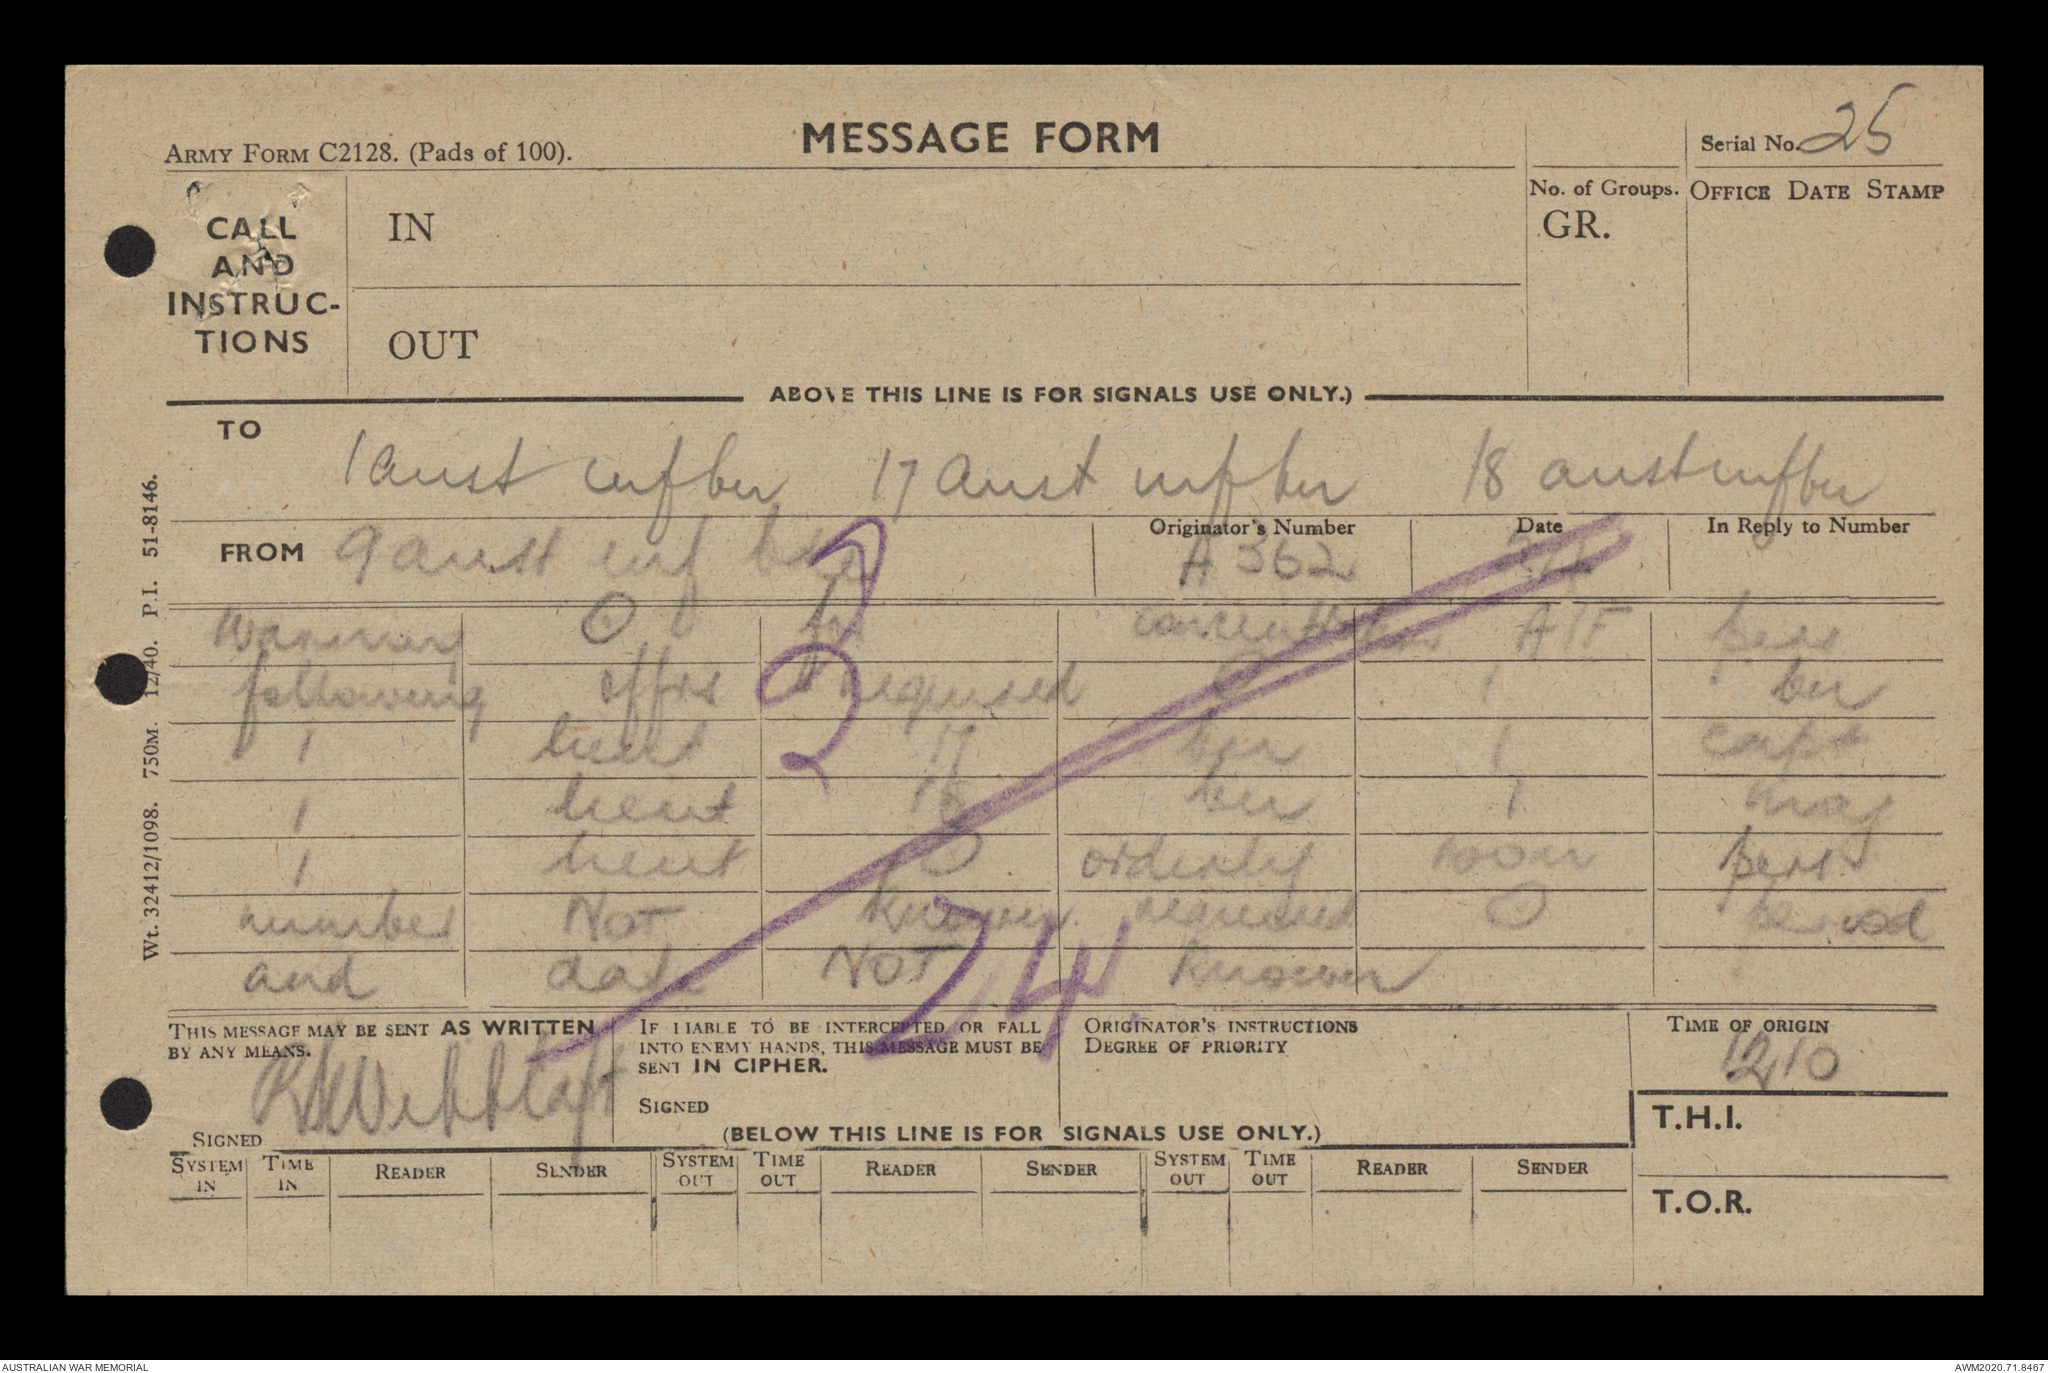 ARMY FORM C2128. (Pads of 100).
MESSAGE FORM
Serial No. 25
CALL AND INSTRUC-TIONS
IN
OUT
No. of Groups.
GR.
OFFICE DATE STAMP
ABOVE THIS LINE IS FOR SIGNALS USE ONLY.)
TO
1 aust inf bn 17 aust inf bn 18 aust inf bn
FROM 9 aust inf bde
Originator's Number
A 362
Date
In Reply to Number
warning O for A/F pers
following offrs required O 1 bn
1 lieut 17 bn 1 capt
1 lieut 18 bn 1 maj
1 lieut O orderly room pers
number NOT known required O period
and date NOT known
24.
THIS MESSAGE MAY BE SENT AS WRITTEN
BY ANY MEANS.
Signed
IF LIABLE TO BE INTERCEPTED OR FALL
INTO ENEMY HANDS, THIS MESSAGE MUST BE
SENT IN CIPHER.
SIGNED
ORIGINATOR'S INSTRUCTIONS
DEGREE OF PRIORITY
TIME OF ORIGIN
1210
T.H.I.
(BELOW THIS LINE IS FOR SIGNALS USE ONLY.)
SYSTEM IN
TIME IN
READER
SENDER
SYSTEM OUT
TIME OUT
READER
SENDER
SYSTEM OUT
TIME OUT
READER
SENDER
T.O.R.
Wt. 32412/1098. 750M. 12/40. P.I. 51-8146.
AUSTRALIAN WAR MEMORIAL
AWM2020.71.8467